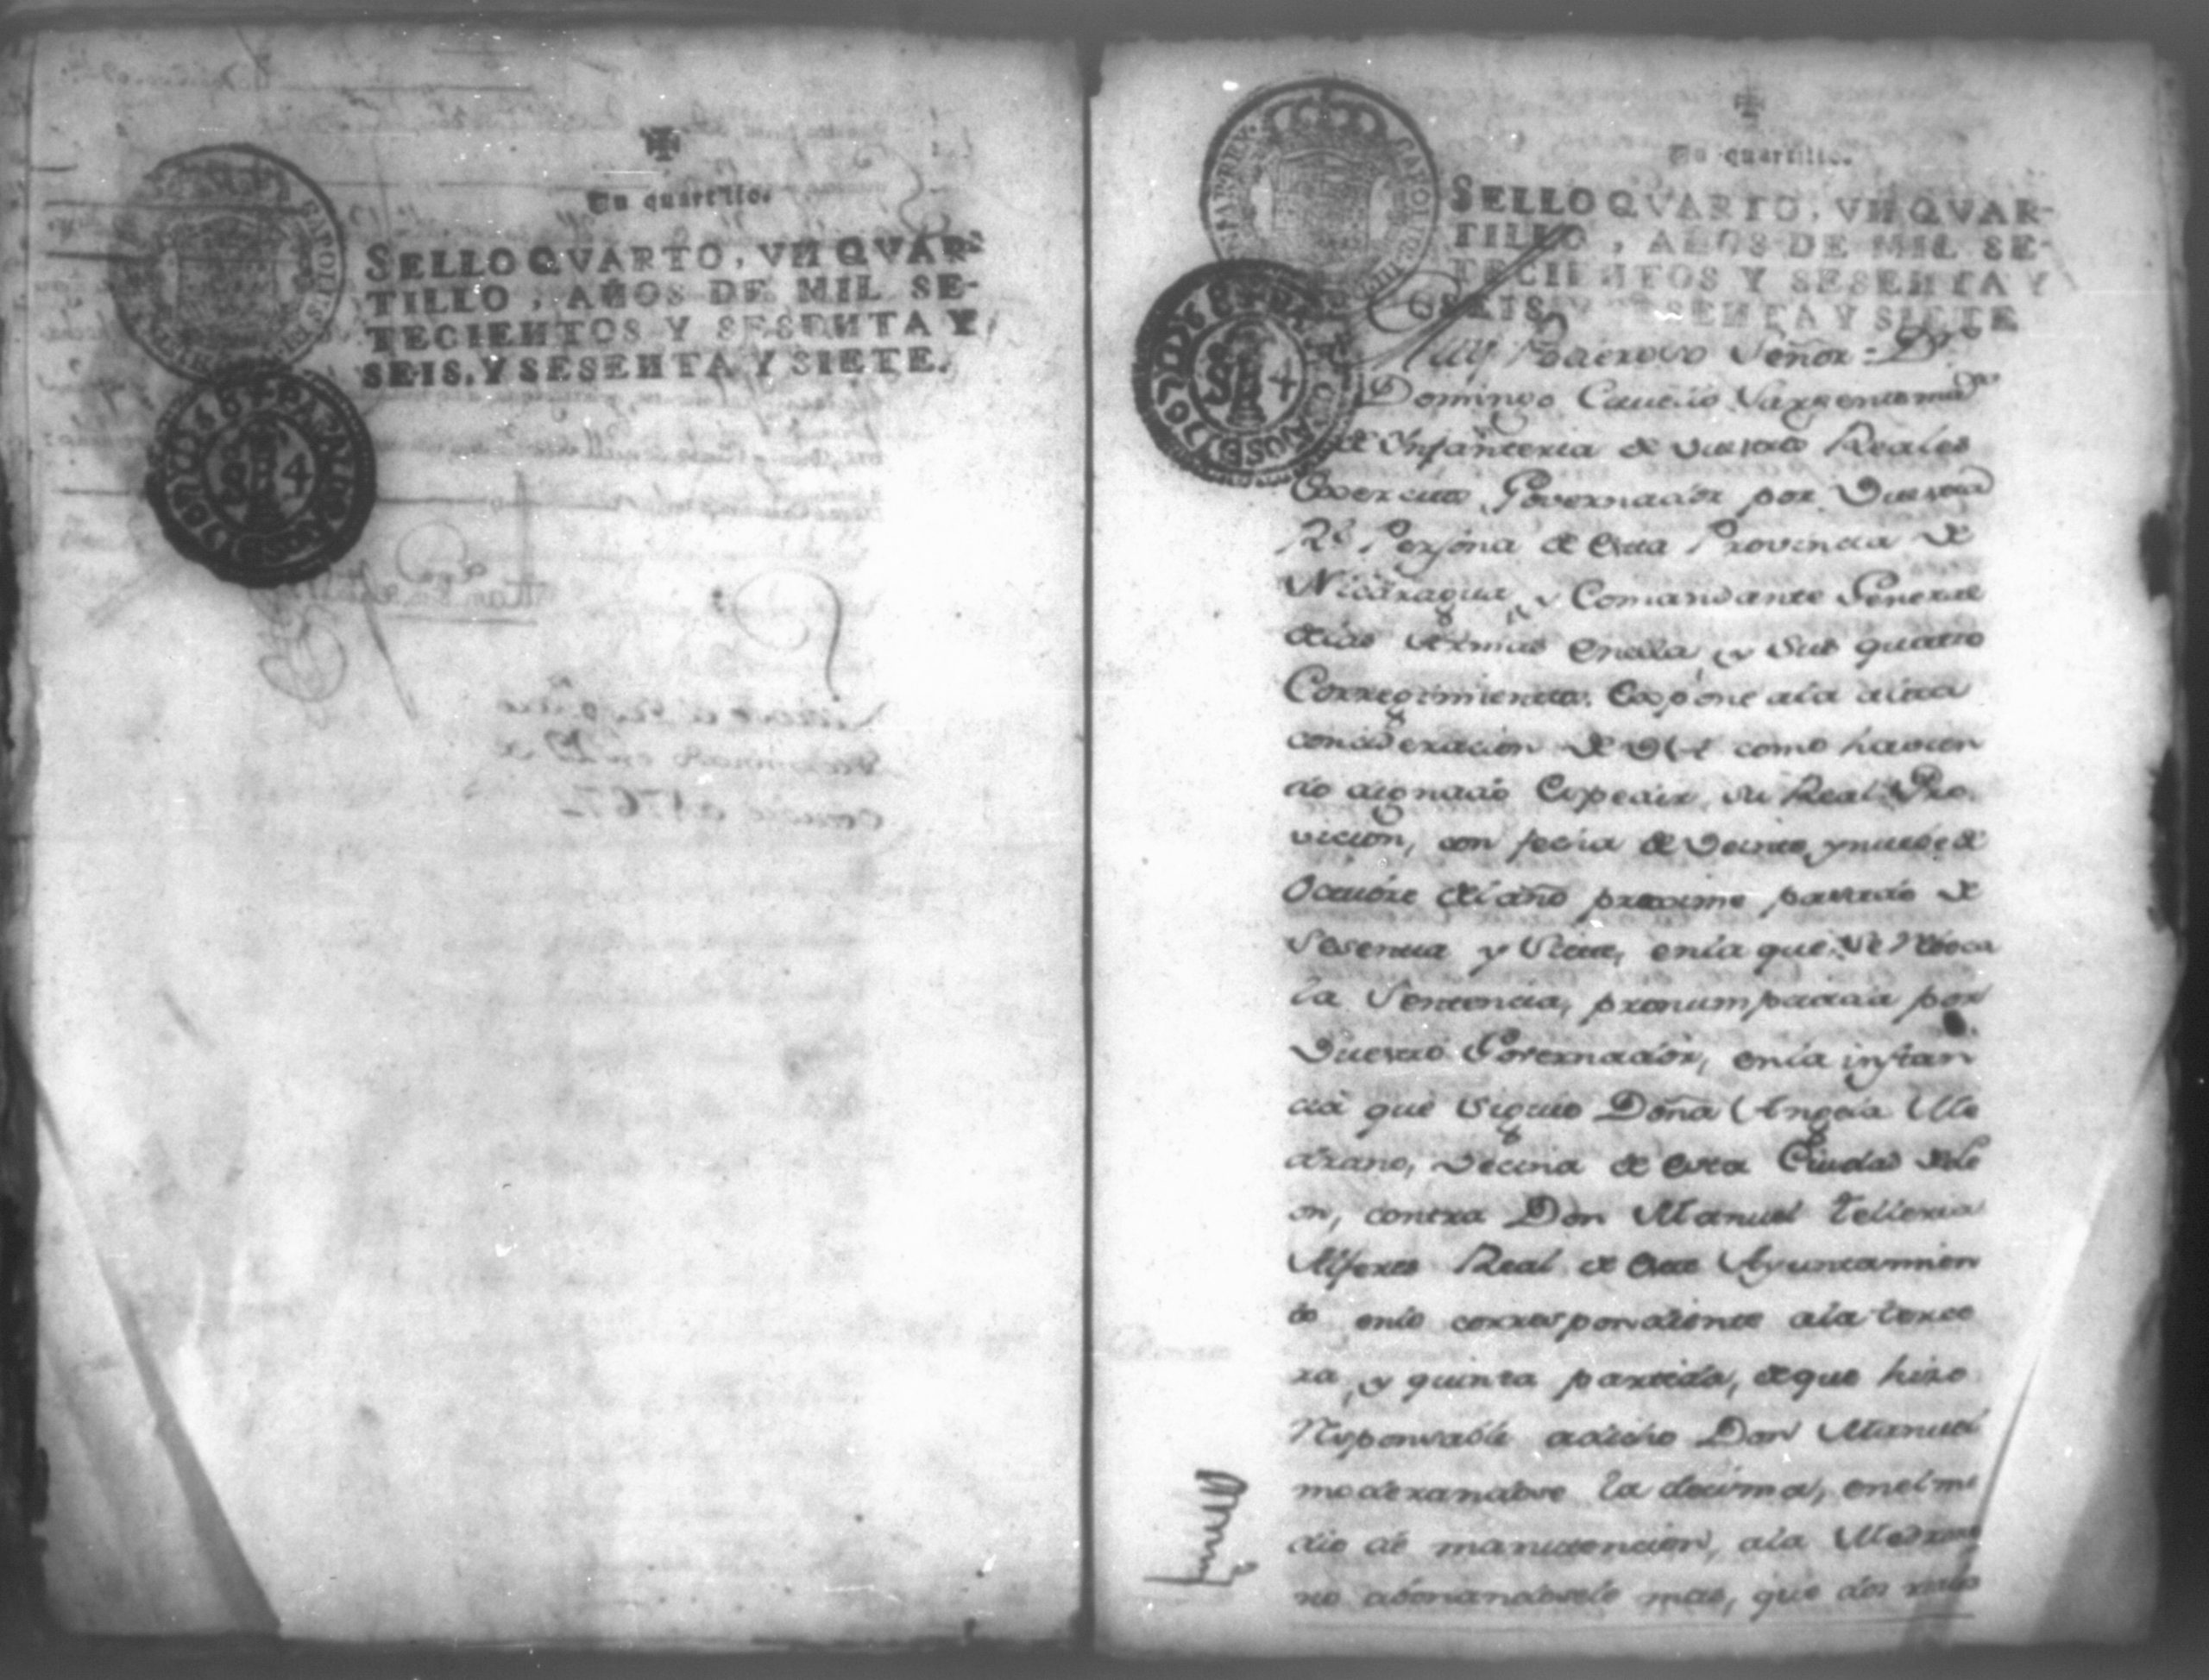 Un quartillo.
SELLO QVARTO, VN QVAR-
TILLO, AÑOS DE MIL SE-
TECIENTOS Y SESENTA Y
SEIS, Y SESENTA Y SIETE.
Un quartillo.
SELLO QVARTO, VN QVAR-
TILLO, AÑOS DE MIL SE-
TECIENTOS Y SESENTA Y
SEIS, Y SESENTA Y SIETE
Muy Poderoso Señor = Dn
Domingo Cavello Sargento mor
de Infanteria de vuestros Reales
Exercitos Governador por Vuestra
Rl Persona de esta Provincia de
Nicaragua, y Comandante General
delas Armas en ella, y sus quatro
Corregimientos. Expone ala alta
concideracion de VA como havien
do dignado Expedir, su Real Pro
vicion, con fecha de veinte, y nuebe de
Octubre del año proximo passado de
Sesenta y Siete, enla que se Reboca
la Sentencia, pronumpciada por
Vuestro Governador, enla instan
cia que siguio Doña Angela Me
drano, vecina de esta Ciudad de Le
on, contra Don Manuel Telleria
Alferes Real de este Ayuntamien
to enlo correspondiente ala terce
ra, y quinta partida, de que hizo
Responsable adicho Don Manuel
moderandose la decima, enel me
dio de manutencion, ala Medrano
no abonandosele mas, que dos reales